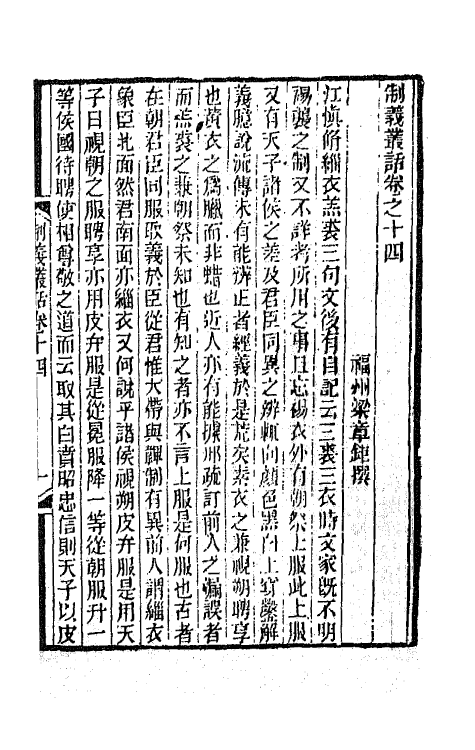 制義叢話卷之十四
福州梁章鉅撰
江愼脩緇衣羔裘三句文後有自記云三裘三衣時文家旣不明
裼襲之制又不詳考所用之事且忘裼衣外有朝祭上服此上服
又有天子諸侯之差及君臣同異之辨輒向顏色黑白上穿鑿解
義臆說流傳未有能辨正者經義於是荒矣素衣之兼視朔聘享
也黃衣之爲臘而非蜡也近人亦有能據邢疏訂前人之漏誤者
而羔裘之兼朝祭未知也有知之者亦不言上服是何服也古者
在朝君臣同服取義於臣從君惟大帶與鞸制有異前人謂緇衣
象臣北面然君南面亦緇衣又何說乎諸侯視朔皮弁服是用天
子日視朝之服聘享亦用皮弁服是從冕服降一等從朝服升一
等侯國待聘使相尊敬之道而云取其白賁昭忠信則天子以皮
制義叢話卷十四
一